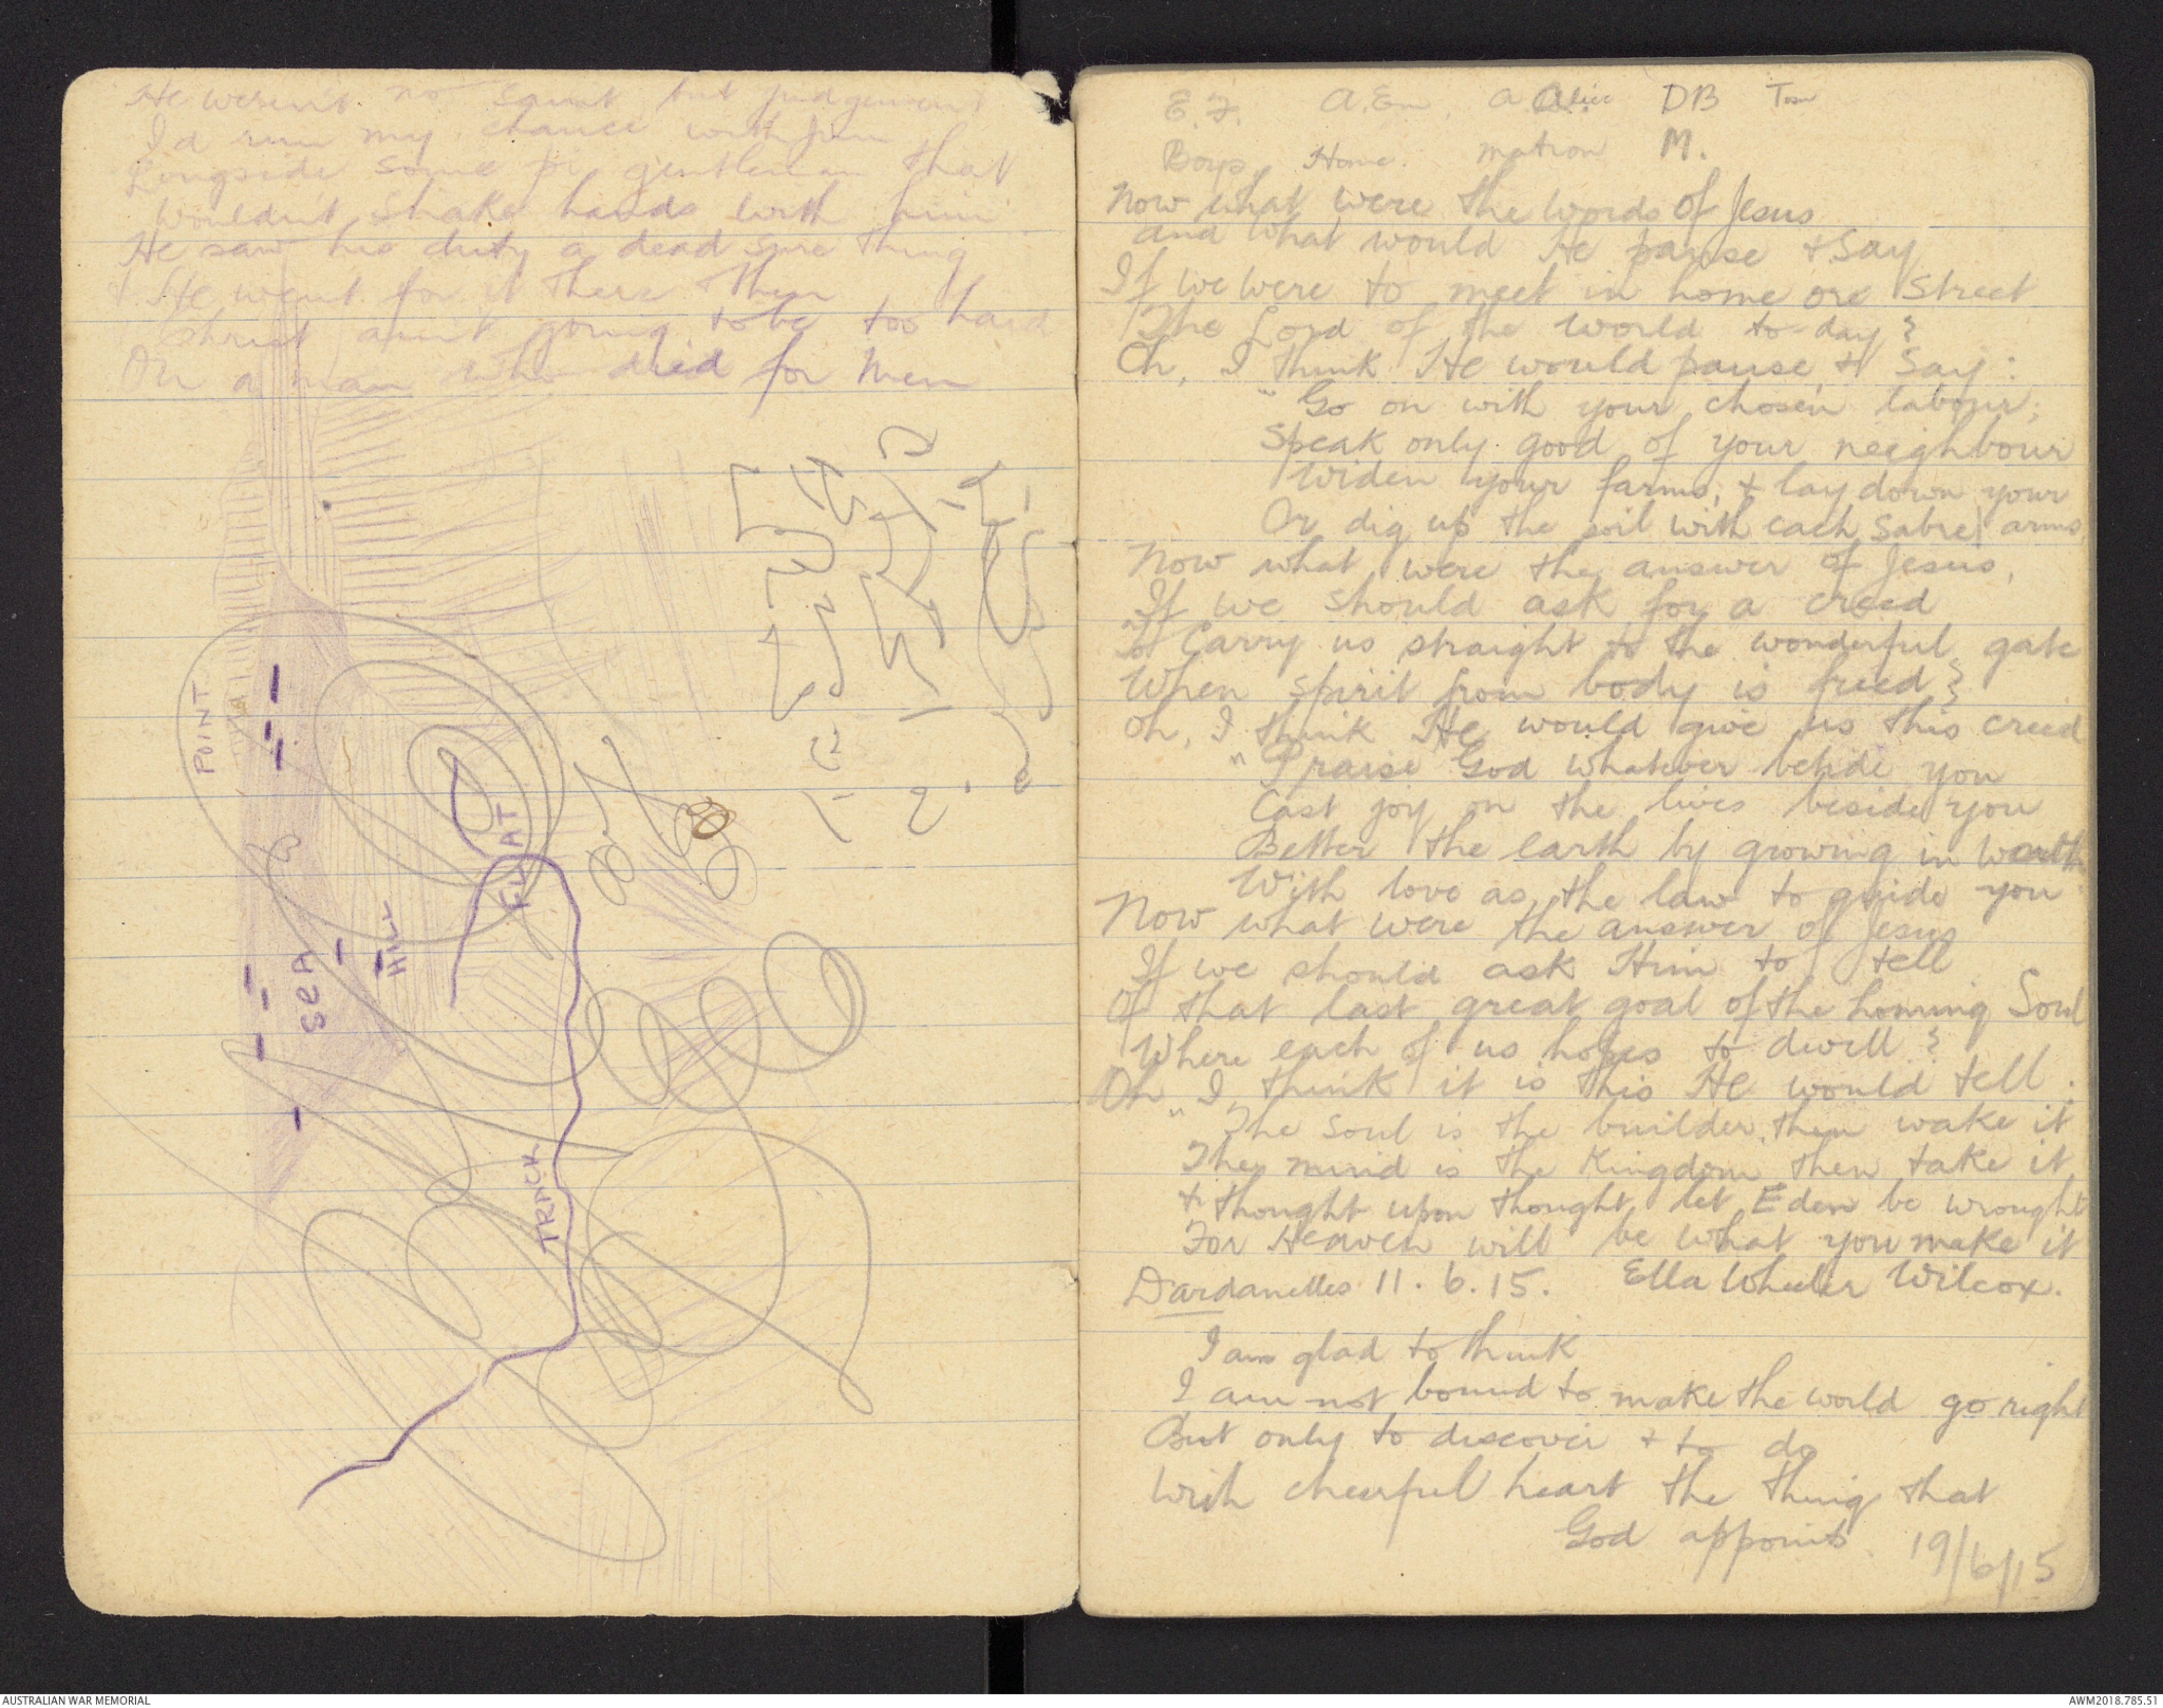 He weren't no saint but judgement
I'd run my chance with Jim
Longside some pi gentleman that
wouldn't shake hands with him
He saw his duty a dead sure thing
& He went for it there then
Christ aint going to be too hard
On a man who died for Men
POINT
FLAT
HILL
SEA
TRACK
E.J. A.Em. a Alice DB Tom
Boys Home. matron M.
Now what were the words of Jesus
and what would He pause & Say
If we were to meet in home ore Street
The Lord of the world to-day?
Oh, I think He would pause & Say:
"Go on with your chosen labour;
Speak only good of your neighbour
Widen your farms, & lay down your
Or dig up the soil with each Sabre arms
Now what were the answer of Jesus,
If we should ask for a creed
To Carry us straight to the wonderful gate
When spirit from body is freed?
Oh, I think He would give us this creed
"Praise God whatever betide you
Cast joy on the lives beside you
Better the earth by growing in worth
With love as the law to guide you
Now what were the answer of Jesus
If we should ask Him to tell
Of that last great goal of the homing Soul
Where each of us hopes to dwell?
Oh I think it is this He would tell:
"The Soul is the builder, then wake it
The mind is the Kingdom then take it
& thought upon thought let Eden be wrought
For Heaven will be what you make it
Dardanelles 11.6.15. Ella Wheeler Wilcox.
I am glad to think
I am not bound to make the world go right
But only to discover & to do
With cheerful heart the thing that
God appoints 19/6/15
AUSTRALIAN WAR MEMORIAL
AWM2018.785.51